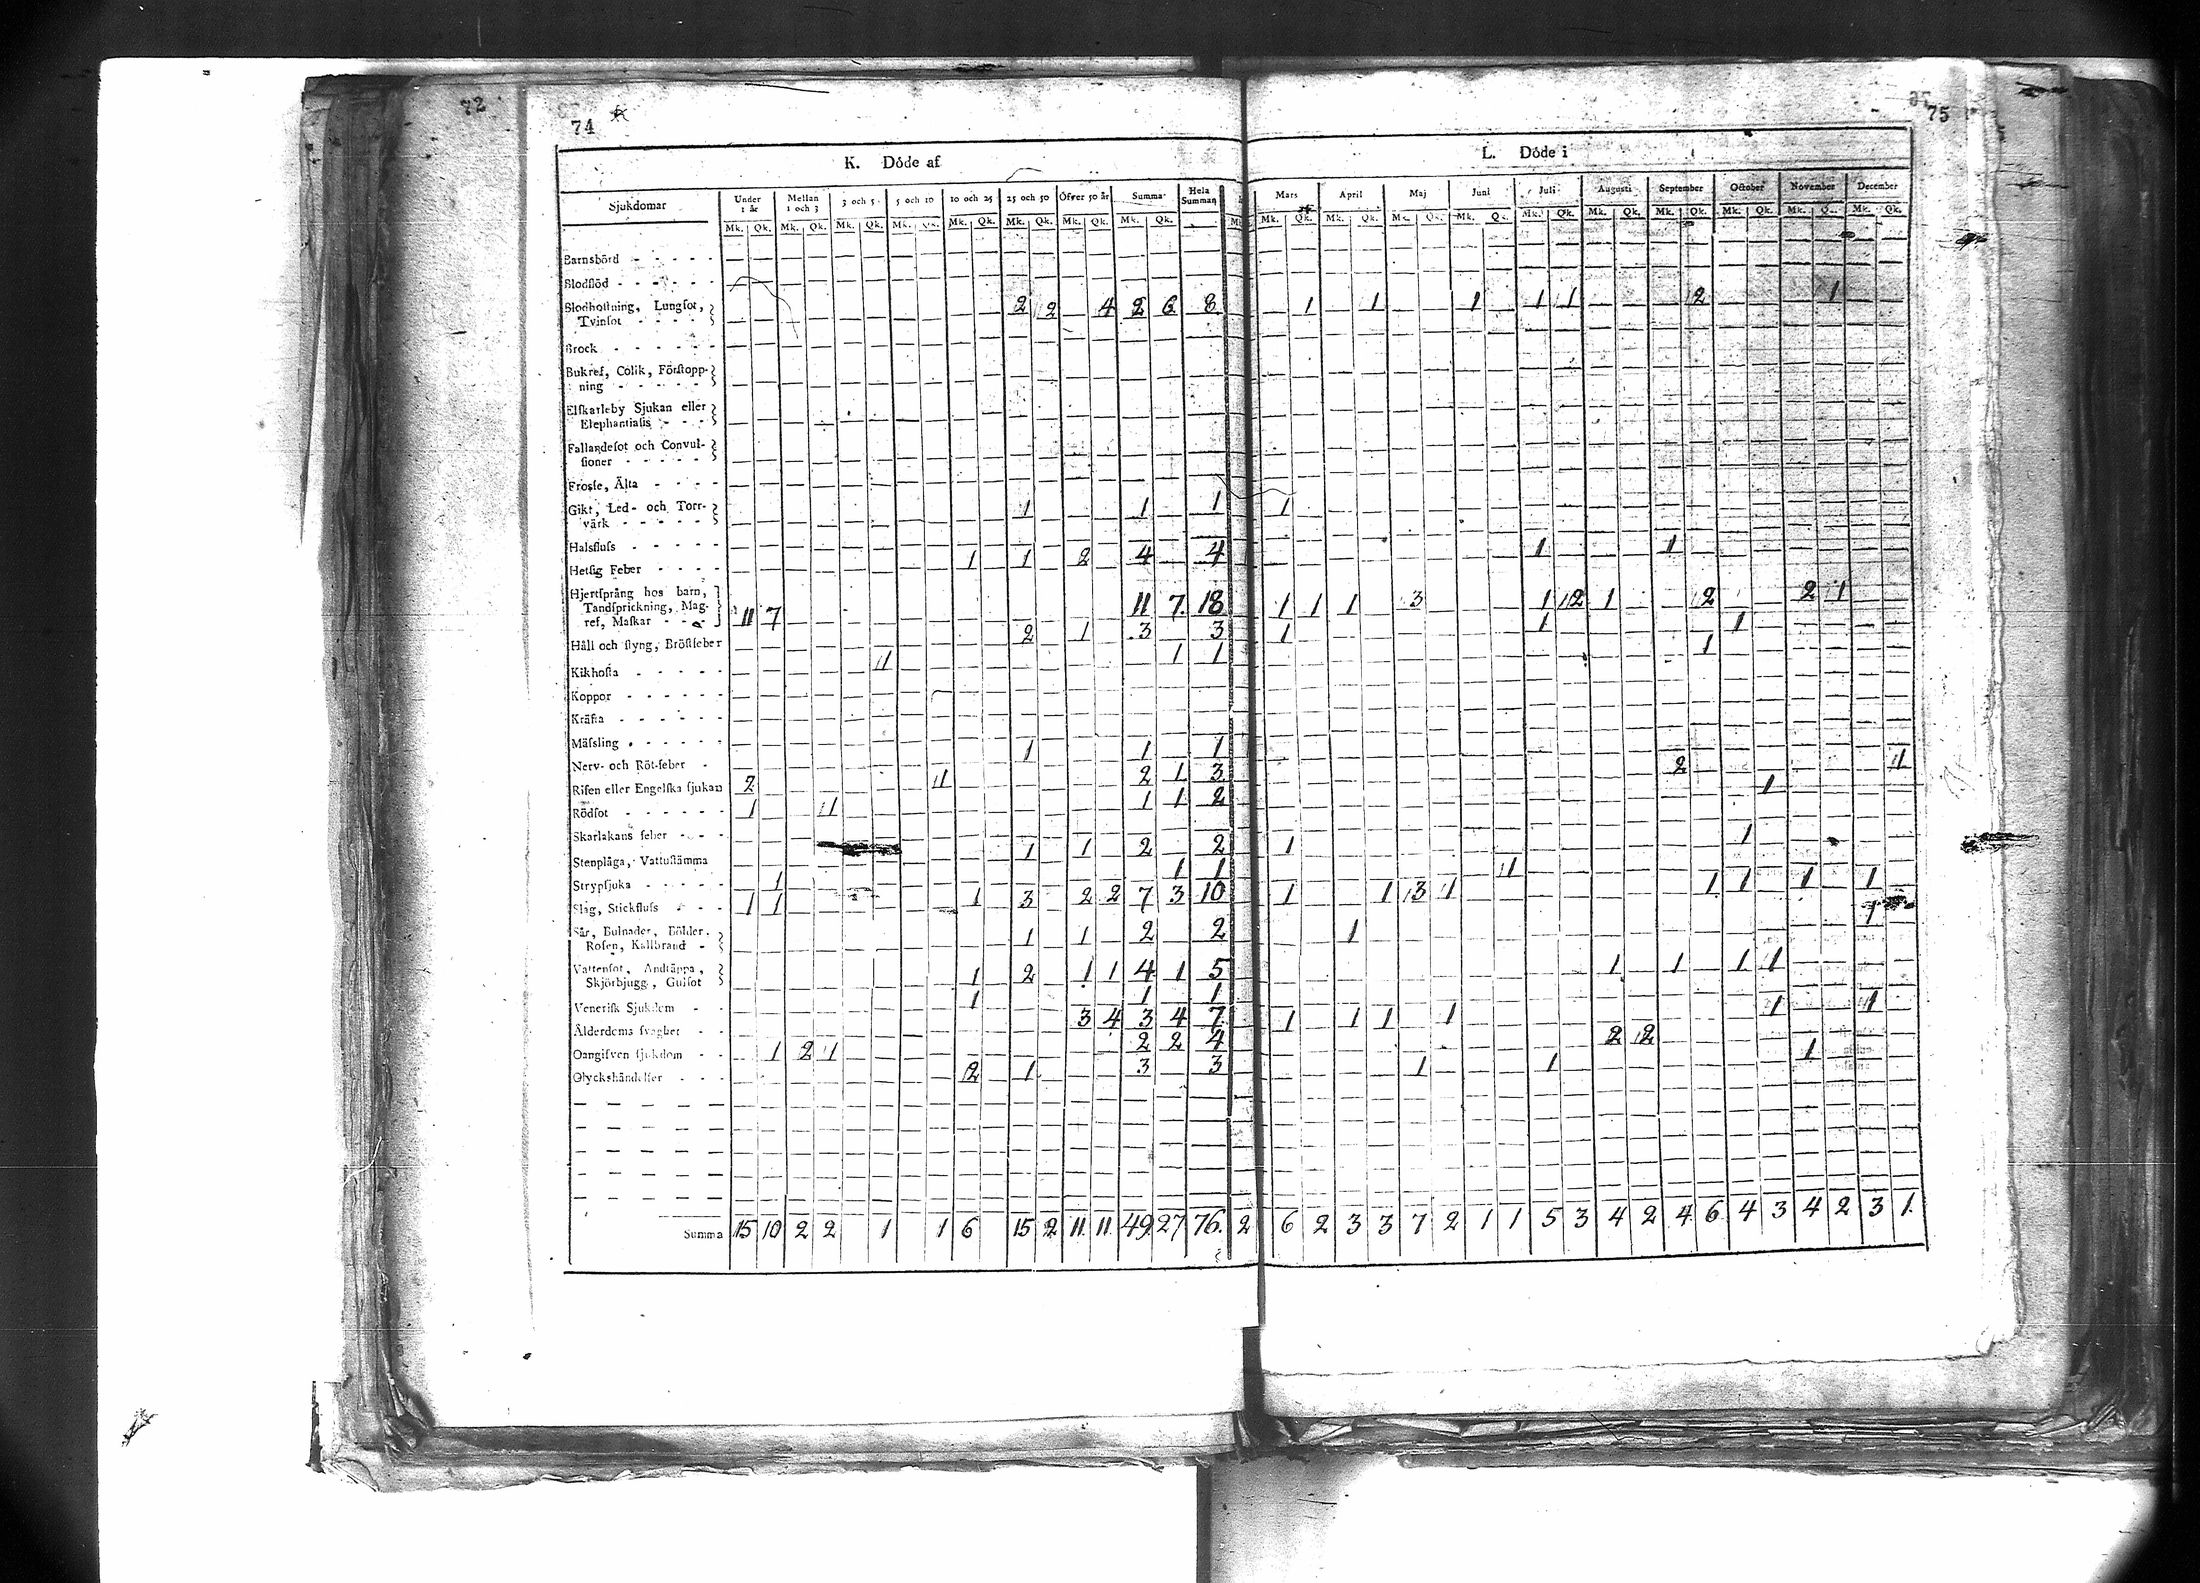 72
74
75
K. Döde af
L. Döde i
Sjukdomar Under 1 år Mellan 1 och 3 3 och 5 5 och 10 10 och 25 25 och 50 Öfver 50 år Summa Hela Summan
Mars April Maj Juni Juli Augusti September October November December
Mk. Qk. Mk. Qk. Mk. Qk. Mk. Qk. Mk. Qk. Mk. Qk. Mk. Qk. Mk. Qk.
Mk. Qk. Mk. Qk. Mk. Qk. Mk. Qk. Mk. Qk. Mk. Qk. Mk. Qk. Mk. Qk. Mk. Qk. Mk. Qk.
Barnsbörd
Blodflöd
Blodhostning, Lungsot, Tvinsot 2 2 4 2 6 8 1 1 1 1 1 2 1
Brock
Bukref, Colik, Förstoppning
Elfkarleby Sjukan eller Elephantiasis
Fallandesot och Convulsioner
Frossa, Älta
Gikt, Led- och Torrvärk 1 1 1 1
Halsfluss
Hetsig Feber 1 1 2 4 4 1 1
Hjertsprång hos barn, Tandsprickning, Magref, Maskar 11 7 11 7 18 1 1 1 3 1 2 1 2 2 1
Håll och styng, Bröstfeber 2 1 3 3 1 1 1
Kikhosta 1 1 1 1
Koppor
Kräfta
Mässling
Nerv- och Röt-feber 1 1 1
Risen eller Engelska sjukan 2 1 2 1 3 2 1
Rödsot 1 1 1 1 2 1
Skarlakans feber
Stenplåga, Vattustämma 1 1 2 2 1 1
Strypsjuka 1 1 1 1
Slag, Stickfluss 1 1 1 3 2 2 7 3 10 1 1 3 1 1 1 1 1
Sår, Bulnader, Bölder, Rosen, Kallbrand 1 1 2 2 1 1
Vattensot, Andtäppa, Skjörbjugg, Gulsot 1 2 1 1 4 1 5 1 1 1 1
Venerisk Sjukdom 1 1 1
Ålderdoms svaghet 3 4 3 4 7 1 1 1 1 1 1
Oangifven sjukdom 1 2 1 2 2 4 2 2
Olyckshändelser 2 1 3 3 1 1 1
Summa 15 10 2 2 1 1 6 15 2 11 11 49 27 76 2 6 2 3 3 7 2 1 1 5 3 4 2 4 6 4 3 4 2 3 1